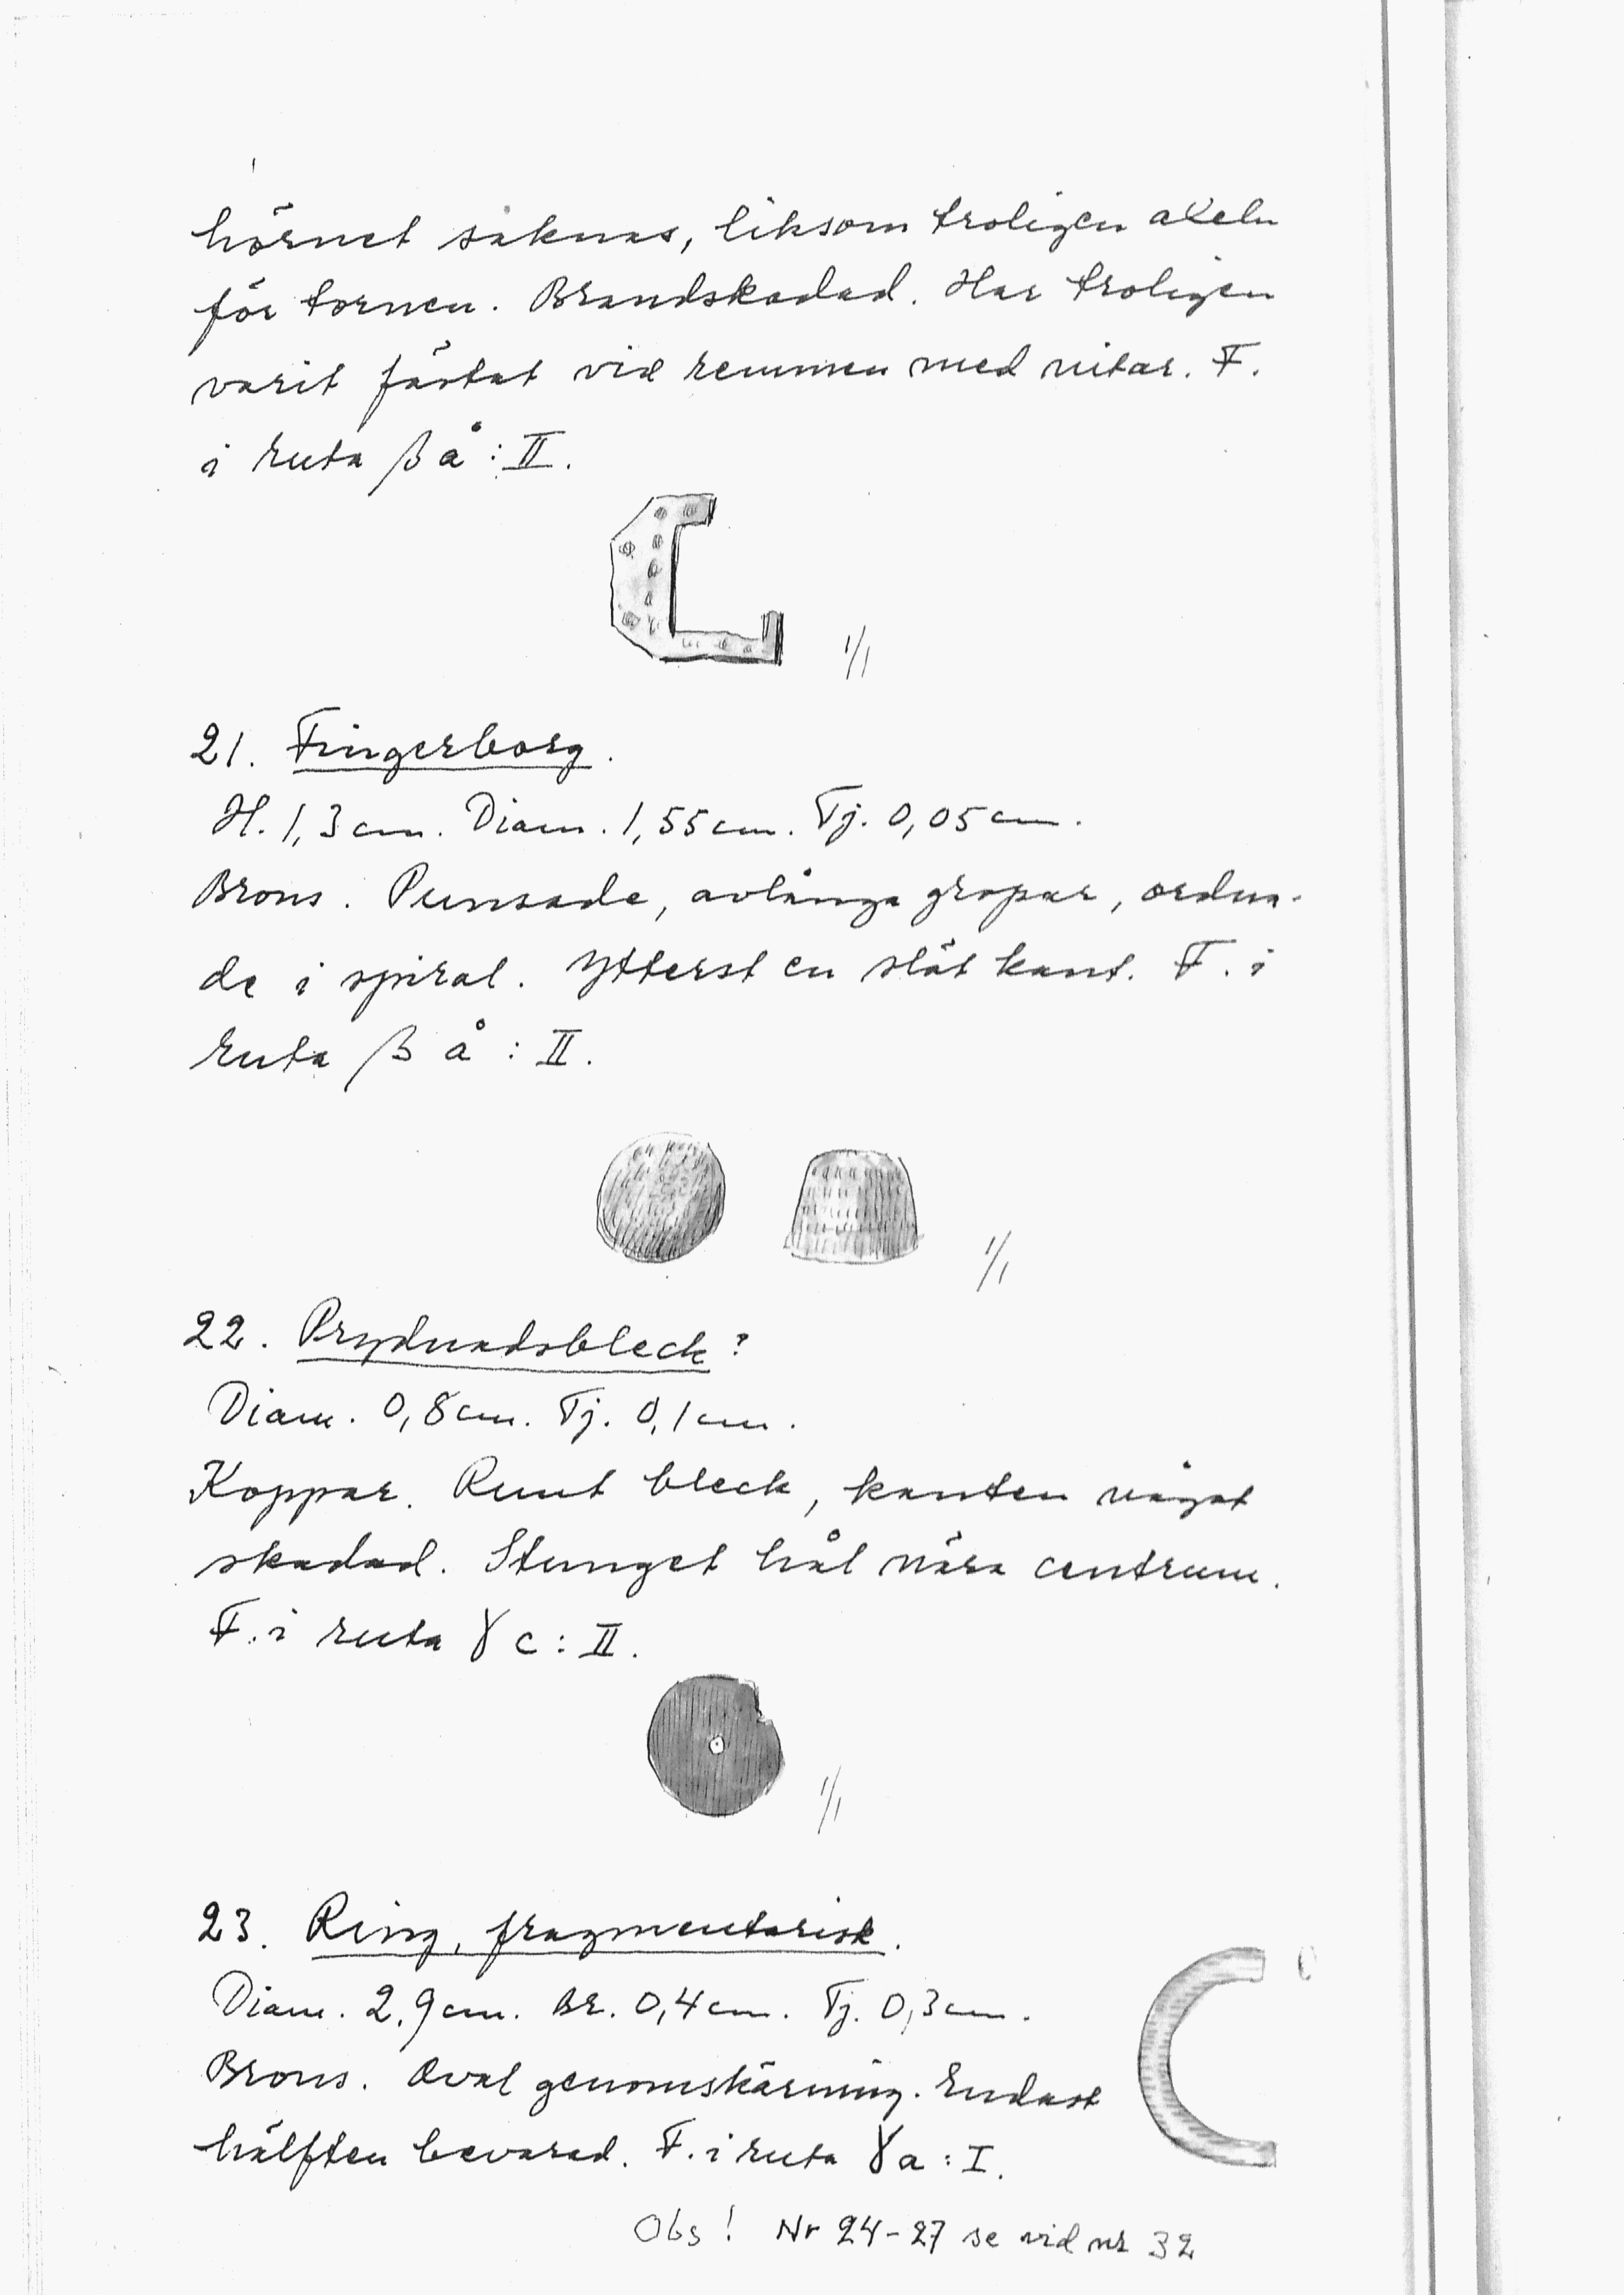 hörnet saknas, liksom troligen axeln
för tornen. Brandskadad. Har troligen
varit fästat vid remmen med nitar. F.
i ruta β å : II.
1/1
21. Fingerborg.
H. 1,3 cm. Diam. 1,55 cm. Tj. 0,05 cm.
Brons. Punsade, avlånga gropar, ordna-
de i spiral. Ytterst en slät kant. F. i
ruta β å : II.
1/1
22. Prydnadsbleck?
Diam. 0,8 cm. Tj. 0,1 cm.
Koppar. Runt bleck, kanten något
skadad. Stunget hål nära centrum.
F. i ruta γ c : II.
1/1
23. Ring, fragmentarisk.
Diam. 2,9 cm. Br. 0,4 cm. Tj. 0,3 cm.
Brons. Oval genomskärning. Endast
hälften bevarad. F. i ruta γ a : I.
Obs! Nr 24-27 se vid nr 32